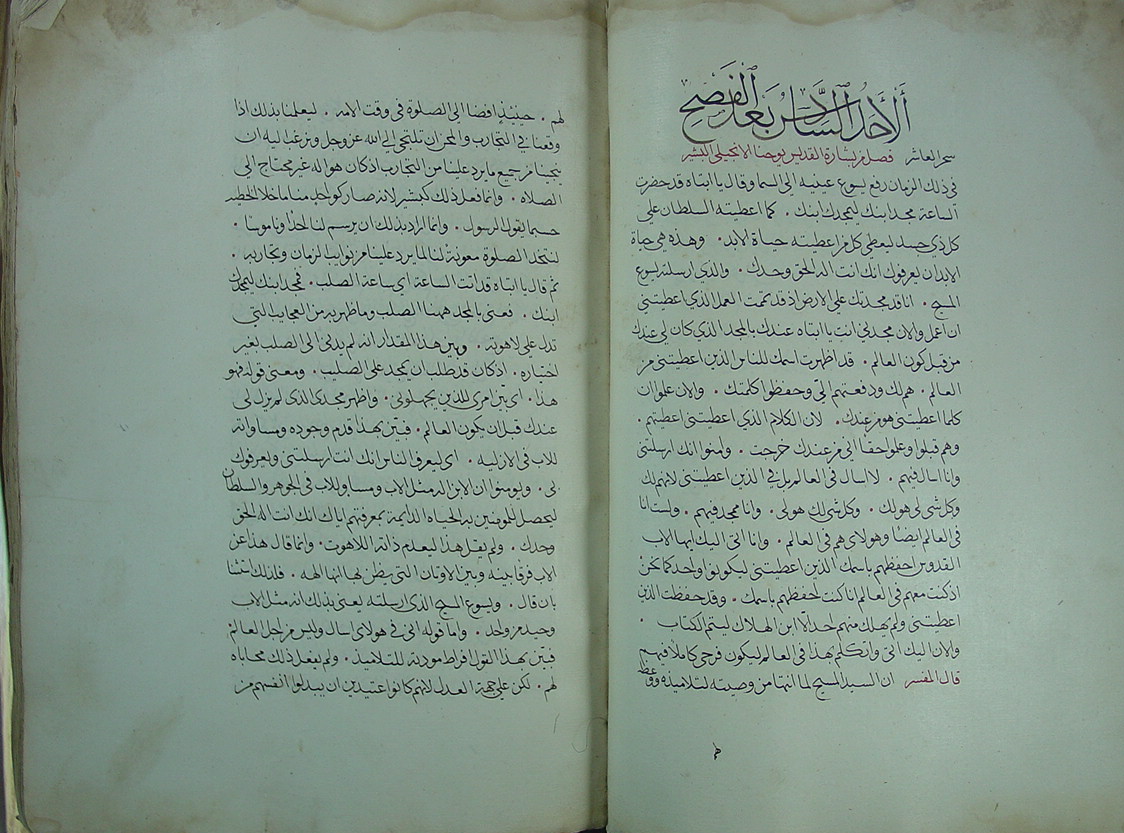 الأحد السادس بعد الفصح
سحر العاشر فصل من بشارة القديس يوحنا الانجيلي البشير
في ذلك الزمان رفع يسوع عينيه الى السما وقال يا ابتاه قد حضرت
الساعة مجد ابنك ليمجدك ابنك . كما اعطيته السلطان على
كل ذي جسد ليعطي كل من اعطيته حياة الابد . وهذه هي حياة
الابد ان يعرفوك انك انت اله الحق وحدك . والذي ارسلته يسوع
المسيح . انا قد مجدتك على الارض اذ قد تممت العمل الذي اعطيتني
ان اعمل والان مجدني انت يا ابتاه عندك بالمجد الذي كان لي عندك
من قبل كون العالم . قد اظهرت اسمك للناس الذين اعطيتني من
العالم . هم لك ودفعتهم الي وحفظوا كلمتك . والان علموا ان
كلما اعطيتني هو من عندك . لان الكلام الذي اعطيتني اعطيتهم .
وهم قبلوا وعلموا حقا اني من عندك خرجت . وامنوا انك ارسلتني
وانا اسال فيهم . لا اسال في العالم بل في الذين اعطيتني لانهم لك
وكل شي لي هو لك . وكل شي لك هو لي . وانا ممجد فيهم . ولست انا
في العالم ايضا وهولاي هم في العالم . وانا اتي اليك ايها الاب
القدوس احفظهم باسمك الذين اعطيتني ليكونوا واحد كما نحن
اذ كنت معهم في العالم انا كنت احفظهم باسمك . وقد حفظت الذين
اعطيتني ولم يهلك منهم احد الا ابن الهلاك ليتم الكتاب .
والان اليك اتي واتكلم بهذا في العالم ليكون فرحي كاملا فيهم
قال المفسر ان السيد المسيح لما انتها من وصيته لتلاميذه ووعظه
لهم
لهم . حينيذ افضا الى الصلوة في وقت الامه . ليعلمنا بذلك اذا
وقعنا في التجارب والمحن ان نلتجي الى الله عز وجل ونرغب اليه ان
ينجينا من جميع ما يرد علينا من التجارب اذ كان هو اله غير محتاج الى
الصلاه . وانما فعل ذلك كبشير لانه صار كواحد منا ما خلا الخطيه
حسبما يقول الرسول . وانما اراد بذلك ان يرسم لنا حدا وناموسا .
لنتخذ الصلوة معونة لنا لما يرد علينا من نوايب الزمان وتجاربه .
ثم قال يا ابتاه قد اتت الساعة اي ساعة الصلب . فمجد ابنك ليمجدك
ابنك . فعنى بالمجد ههنا الصلب وما ظهر به من العجايب التي
تدل على لاهوته . وبين هذا المقدار انه لم يدنى الى الصلب بغير
اختياره . اذ كان قد طلب ان يمجد على الصليب . ومعنى قوله فهو
هذا . اي بين امري للذين يجهلوني . واظهر مجدي الذي لم يزل لي
عندك قبل ان يكون العالم . فبين بهذا قدم وجوده ومساواته
للاب في الازليه . اي ليعرف الناس انك انت ارسلتني وليعرفوك
لي . ويومنوا ان الابن اله مثل الاب ومساو للاب في الجوهر والسلطان
ليحصل للمومنين به الحياه الدايمة بمعرفتهم اياك انك انت اله الحق
وحدك . ولم يقل هذا ليعدم ذاته اللاهوت . وانما قال هذا عن
الاب فرقا بينه وبين الاوثان التي يظن بها انها الهه . فلذلك استثنا
بان قال . ويسوع المسيح الذي ارسلته يعني بذلك انه مثل الاب
وحيد من واحد . واما قوله اني في هولاي اسال وليس من اجل العالم
فبين بهذا القول افراط مودته للتلاميذ . ولم يفعل ذلك محاباه
لهم . لكن على جهة العدل لانهم كانوا عتيدين ان يبذلوا انفسهم من